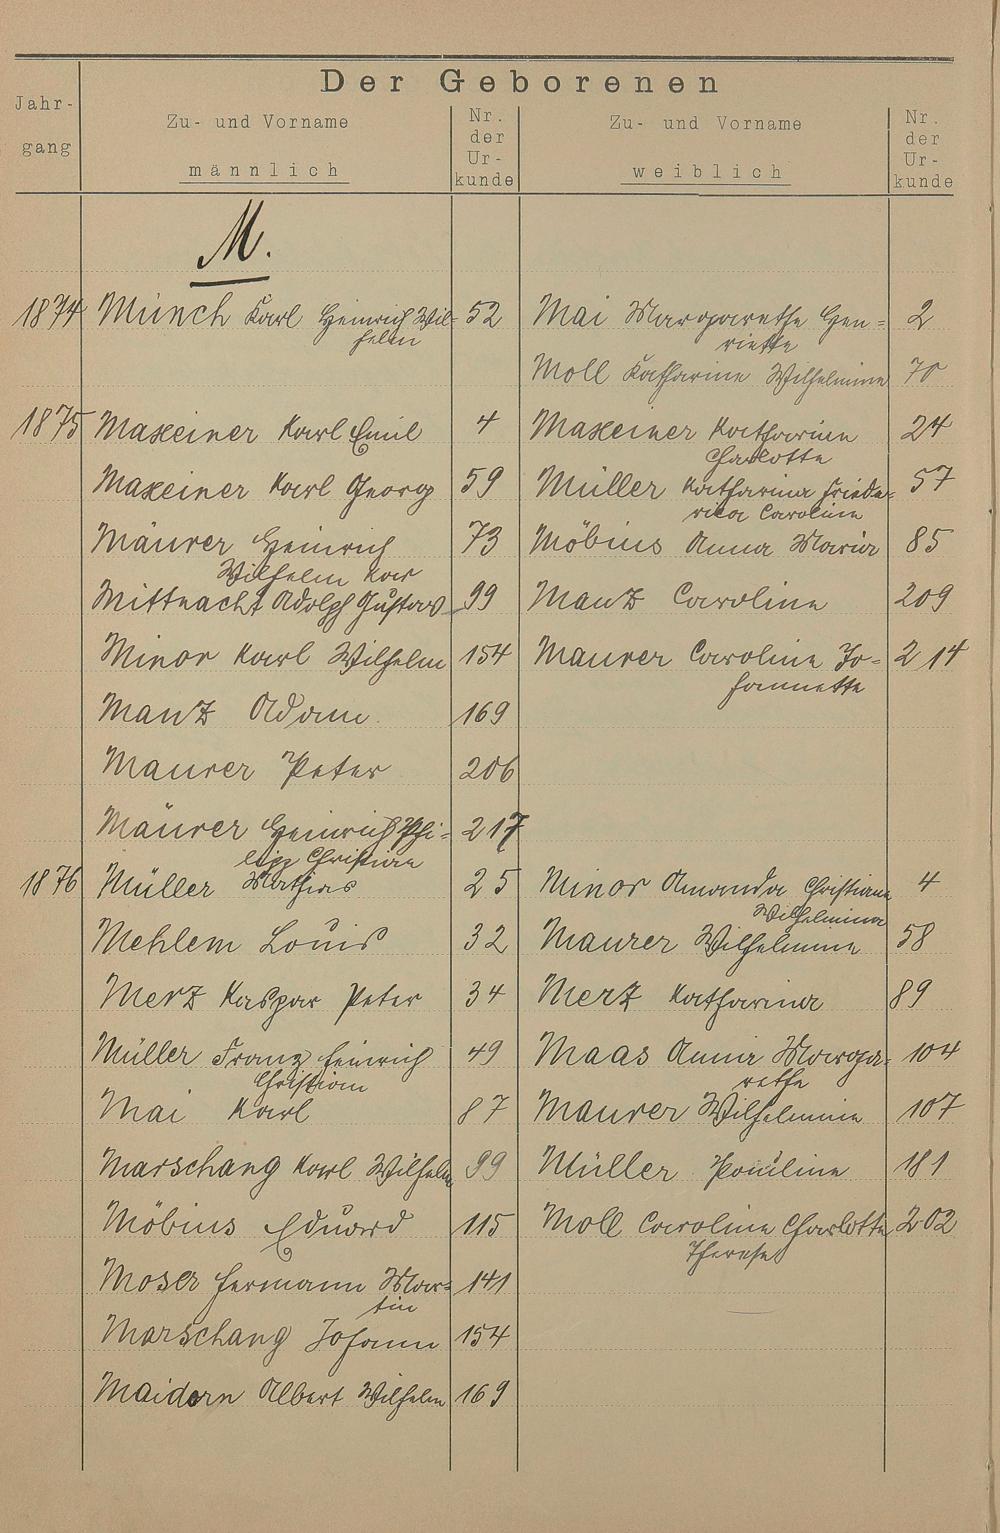 Der Geborenen
Jahr-
gang
Zu- und Vorname
männlich
Nr.
der
Ur-
kunde
Zu- und Vorname
weiblich
Nr.
der
Ur-
kunde
M.
1874 Münch Karl Heinrich Wil- 52 Mai Margarethe Hen= 2
helm riette
Moll Katharine Wilhelmine 70
1875 Maxeiner Karl Emil 4 Maxeiner Katharine 24
Charlotte
Maxeiner Karl Georg 59 Müller Katharina Friede- 57
rica Caroline
Mäurer Heinrich 73 Möbius Anna Maria 85
Wilhelm Kar
Mittnacht Adolph Gustav 99 Manz Caroline 209
Minor Karl Wilhelm 154 Maurer Caroline Jo- 214
hannette
Manz Adam 169
Maurer Peter 206
Mäurer Heinrich Phi- 217
lipp Christian
1876 Müller Mathias 25 Minor Amanda Christiane 4
Wilhelmina
Mehlem Louis 32 Maurer Wilhelmine 58
Merz Kaspar Peter 34 Merz Katharina 89
Müller Franz Heinrich 49 Maas Anna Marga- 104
Christian rethe
Mai Karl 87 Maurer Wilhelmine 107
Marschang Karl Wilhelm 99 Müller Pauline 181
Möbius Eduard 115 Moll Caroline Charlotte 202
Therese
Moser Hermann Mar- 141
tin
Marschang Johann 154
Maidorn Albert Wilhelm 169